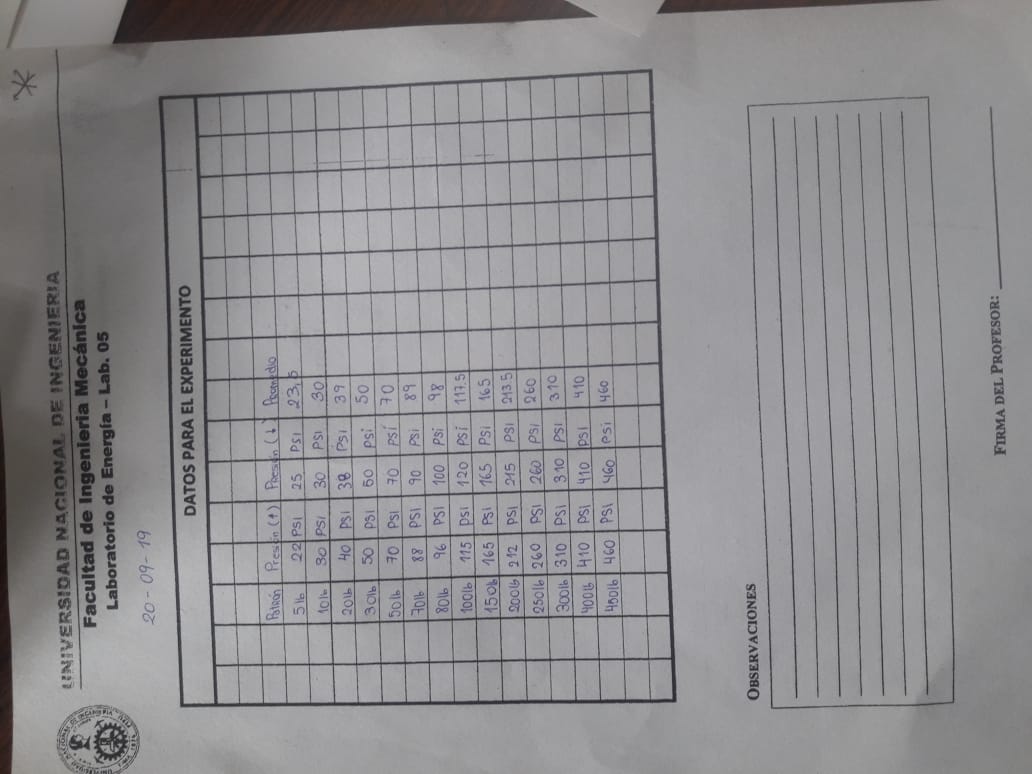 UNIVERSIDAD NACIONAL DE INGENIERIA
Facultad de Ingenieria Mecánica
Laboratorio de Energía – Lab. 05
20-09-19
DATOS PARA EL EXPERIMENTO
Patrón Presión (↑) Presión (↓) Promedio
5 lb 22 PSI 25 PSI 23,5
10 lb 30 PSI 30 PSI 30
20 lb 40 PSI 38 PSI 39
30 lb 50 PSI 50 PSI 50
50 lb 70 PSI 70 PSI 70
70 lb 88 PSI 90 PSI 89
80 lb 96 PSI 100 PSI 98
100 lb 115 PSI 120 PSI 117.5
150 lb 165 PSI 165 PSI 165
200 lb 212 PSI 215 PSI 213.5
250 lb 260 PSI 260 PSI 260
300 lb 310 PSI 310 PSI 310
400 lb 410 PSI 410 PSI 410
450 lb 460 PSI 460 PSI 460
OBSERVACIONES
FIRMA DEL PROFESOR: